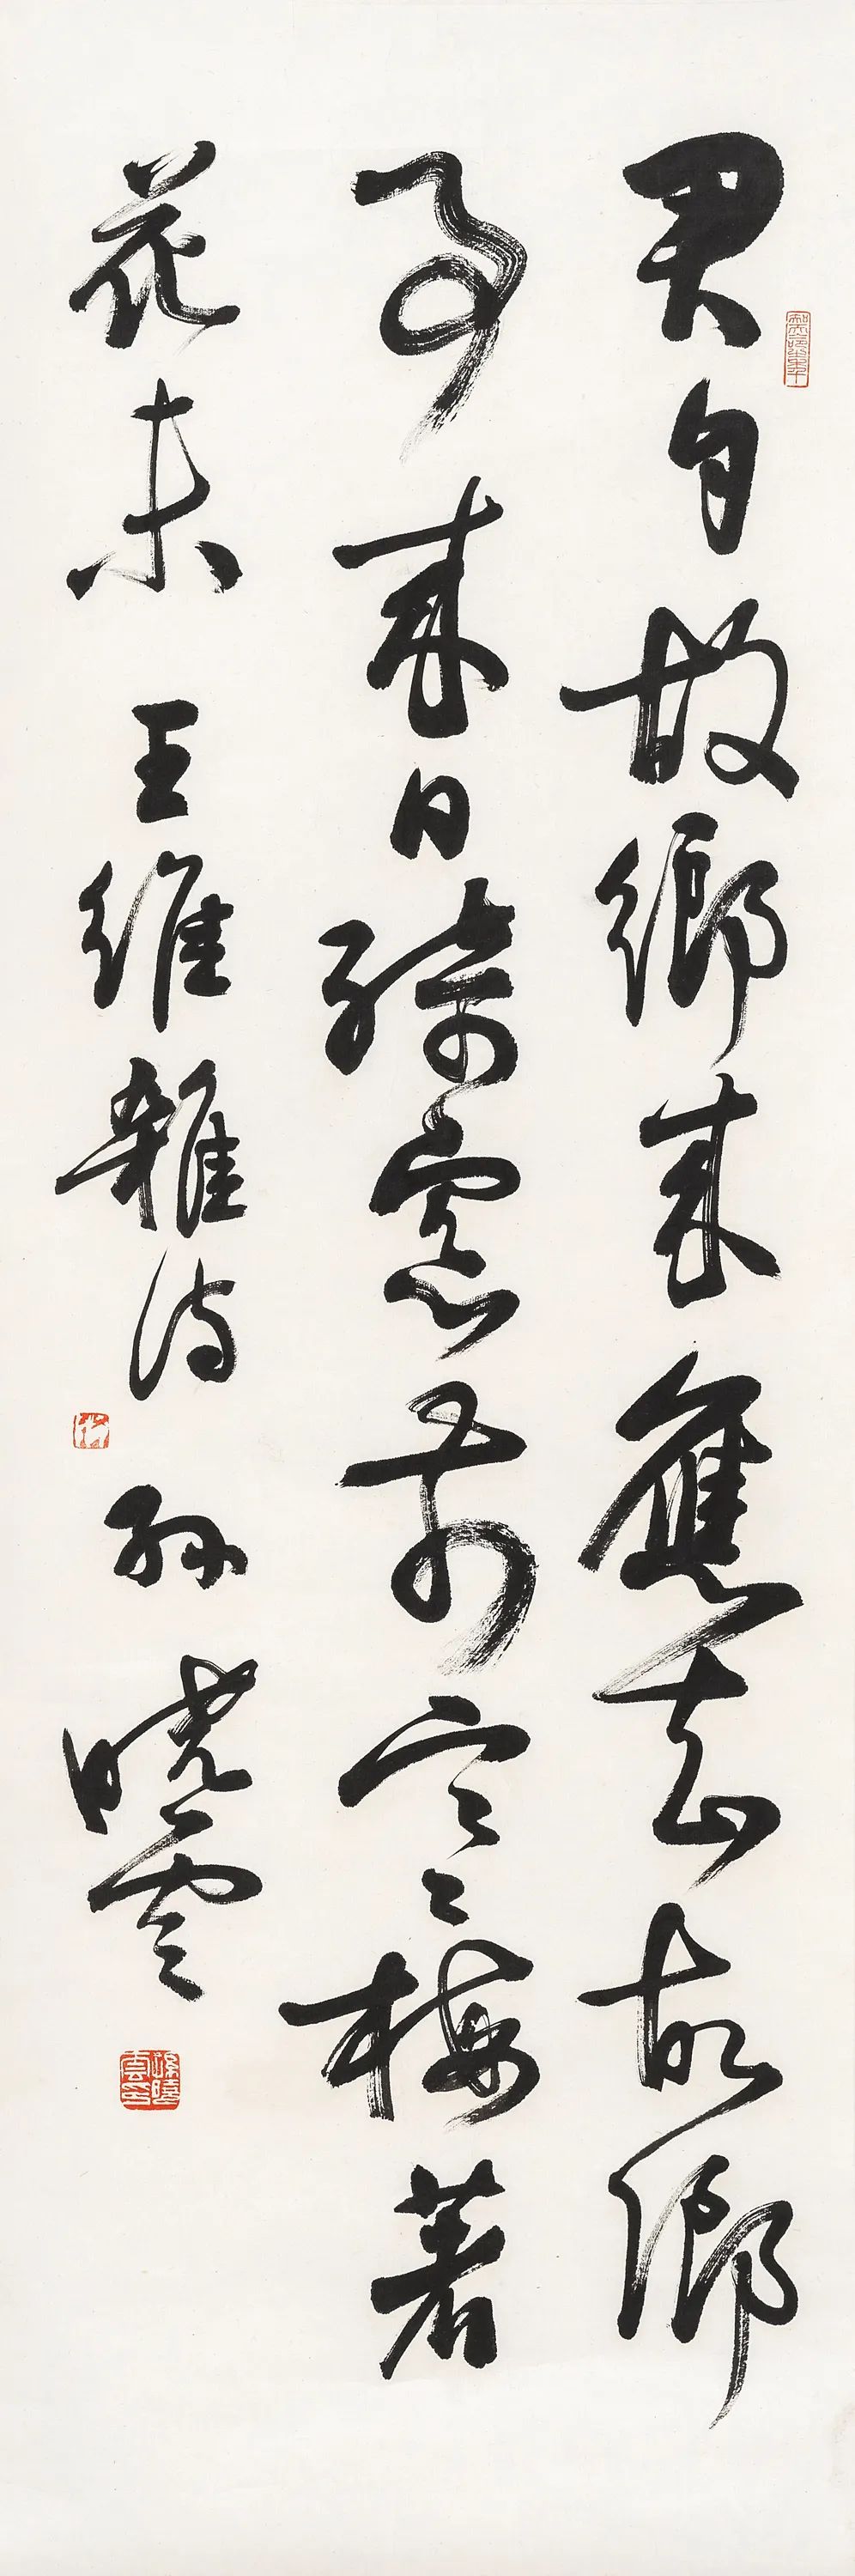 君自故鄉來應知故鄉
事來日綺窗前寒梅著
花未 王維雜詩 孫曉雲
孫曉雲印